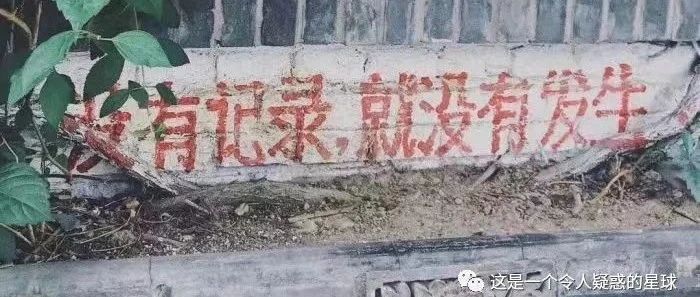 没有记录，就没有发生
这是一个令人疑惑的星球